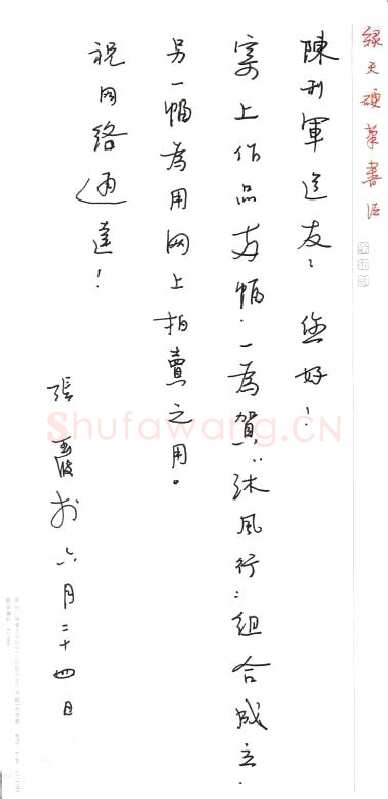 綠天硬筆書法
陳利軍道友：您好！
寄上作品两幅．一為賀："沐風行：組合成立．
另一幅為用网上拍賣之用。
祝网络通達！
張霞於六月二十四日
Shufawang.CN